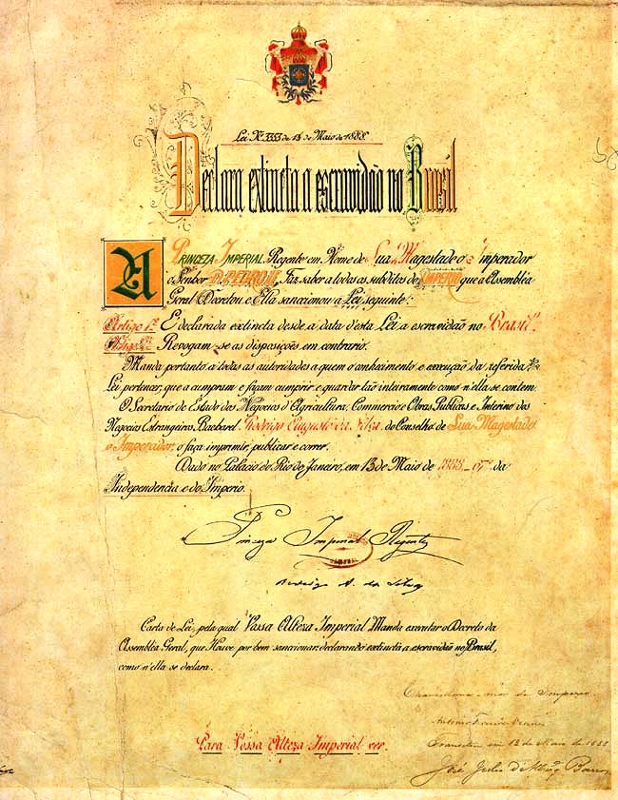 Lei Nº 3353 de 13 de Maio de 1888.
Declara extincta a escravidão no Brasil
A PRINCEZA IMPERIAL Regente em Nome de Sua Magestade o Imperador
o Senhor D. PEDRO II, Faz saber a todos os subditos do IMPERIO que a Assembléa
Geral Decretou e Ella sanccionou a Lei seguinte:
Artigo 1º É declarada extincta desde a data d'esta Lei a escravidão no Brasil.
Artigo 2º Revogam-se as disposições em contrario.
Manda portanto a todas as autoridades a quem o conhecimento e execução da referida
Lei pertencer, que a cumpram e façam cumprir e guardar tão inteiramente como n'ella se contem.
O Secretario de Estado dos Negocios d'Agricultura, Commercio e Obras Publicas e Interino dos
Negocios Estrangeiros, Bacharel Rodrigo Augusto da Silva do Conselho de Sua Magestade
o Imperador, o faça imprimir, publicar e correr.
Dado no Palacio do Rio de Janeiro, em 13 de Maio de 1888_67º da
Independencia e do Imperio.
Princeza Imperial Regente
Rodrigo A. da Silva
Carta de Lei, pela qual Vossa Alteza Imperial Manda executar o Decreto da
Assembléa Geral, que Houve por bem sanccionar declarando extincta a escravidão no Brasil,
como n'ella se declara.
Chancellaria-mór do Imperio.
Antonio Ferreira Vianna
Transitou em 13 de Maio de 1888
José Julio d'Albuq Barros
Para Vossa Alteza Imperial ver.